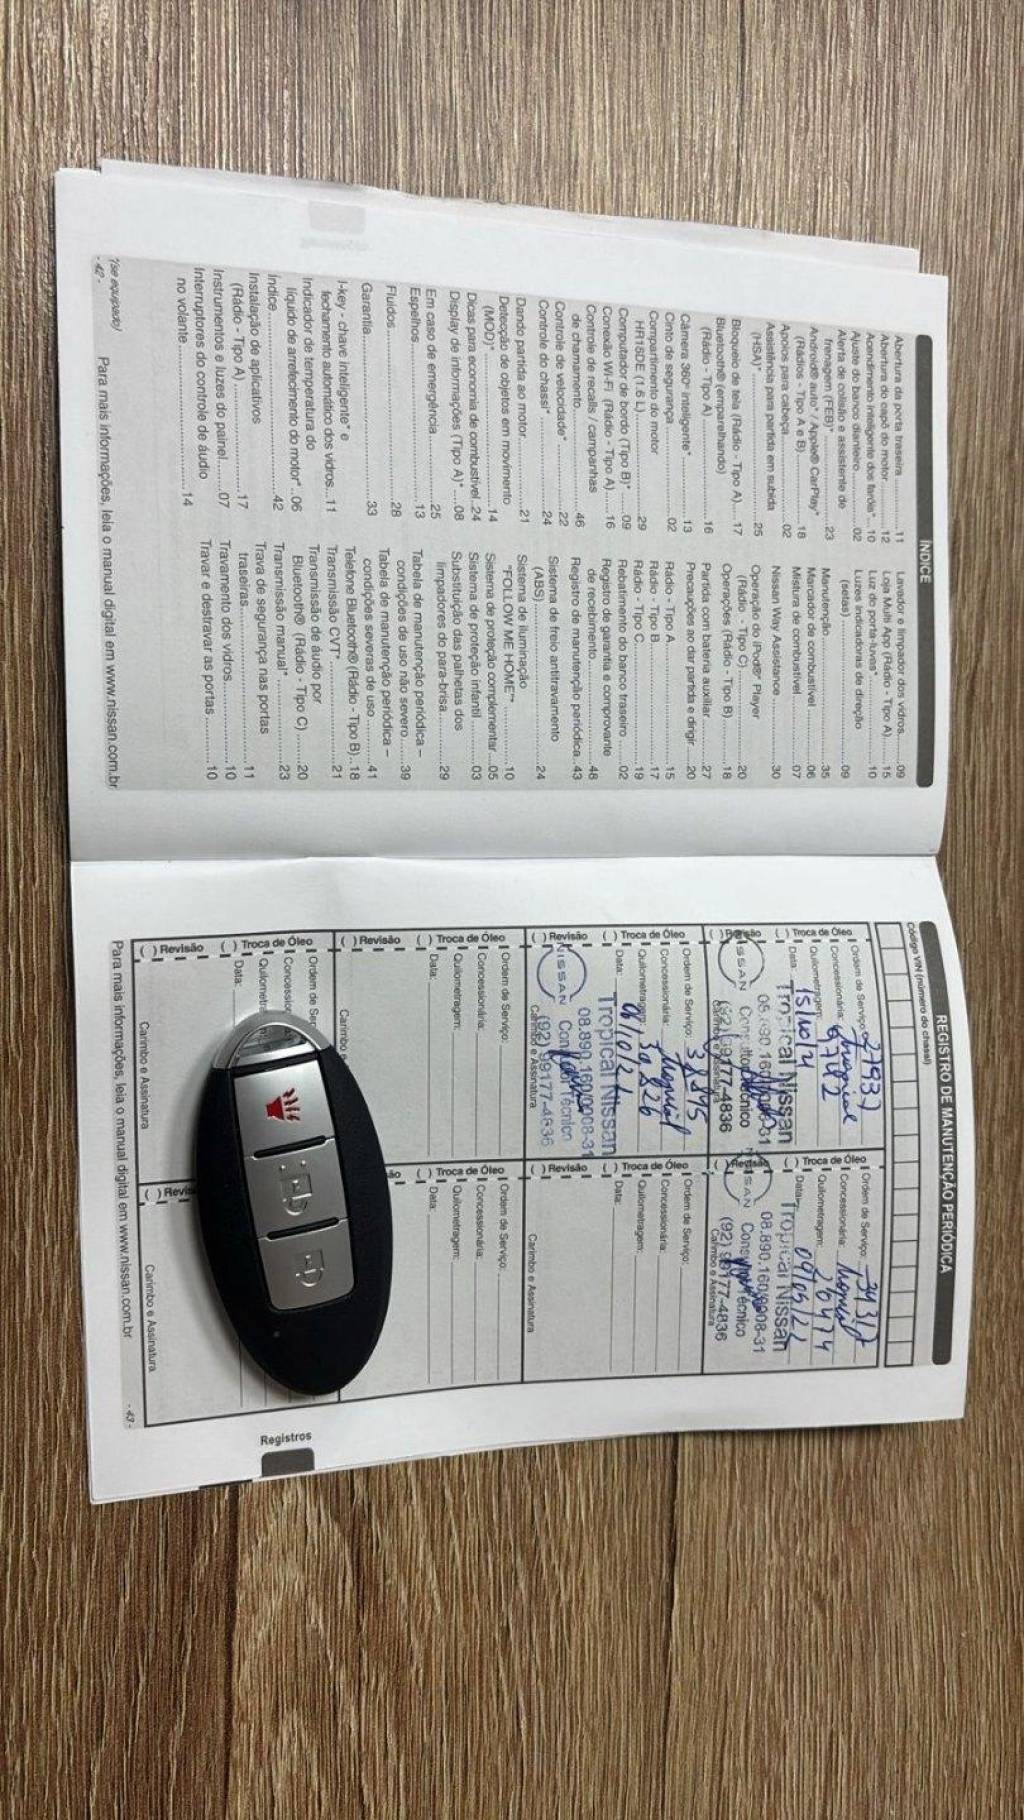 ÍNDICE
Abertura da porta traseira ......11
Abertura do capô do motor......12
Acendimento inteligente dos faróis*...10
Ajuste do banco dianteiro......02
Alerta de colisão e assistente de
frenagem (FEB)*......23
Android® auto* / Apple® CarPlay*
(Rádios - Tipo A e B)......18
Apoios para cabeça......02
Assistência para partida em subida
(HSA)*......25
Bloqueio de tela (Rádio - Tipo A)...17
Bluetooth® (emparelhando)
(Rádio - Tipo A)......16
Câmera 360° inteligente*......13
Cinto de segurança......02
Compartimento do motor
HR16DE (1.6 L)......29
Computador de bordo (Tipo B)*...09
Conexão Wi-Fi (Rádio - Tipo A)...16
Controle de recalls / campanhas
de chamamento......46
Controle de velocidade*......22
Controle do chassi*......24
Dando partida ao motor......21
Detecção de objetos em movimento
(MOD)*......14
Dicas para economia de combustível...24
Display de informações (Tipo A)*...08
Em caso de emergência......25
Espelhos......13
Fluidos......28
Garantia......33
I-key - chave inteligente* e
fechamento automático dos vidros...11
Indicador de temperatura do
líquido de arrefecimento do motor*..06
Índice......42
Instalação de aplicativos
(Rádio - Tipo A)......17
Instrumentos e luzes do painel......07
Interruptores do controle de áudio
no volante......14
Lavador e limpador dos vidros......09
Loja Multi App (Rádio - Tipo A)...15
Luz do porta-luvas*......10
Luzes indicadoras de direção
(setas)......09
Manutenção......35
Marcador de combustível......06
Mistura de combustível......07
Nissan Way Assistance......30
Operação do iPod®* Player
(Rádio - Tipo C)......20
Operações (Rádio - Tipo B)......18
Partida com bateria auxiliar......27
Precauções ao dar partida e dirigir...20
Rádio - Tipo A......15
Rádio - Tipo B......17
Rádio - Tipo C......19
Rebatimento do banco traseiro......02
Registro de garantia e comprovante
de recebimento......48
Registro de manutenção periódica...43
Sistema de freio antitravamento
(ABS)......24
Sistema de iluminação
"FOLLOW ME HOME"*......10
Sistema de proteção complementar...05
Sistema de proteção infantil......03
Substituição das palhetas dos
limpadores do para-brisa......29
Tabela de manutenção periódica –
condições de uso não severo......39
Tabela de manutenção periódica –
condições severas de uso......41
Telefone Bluetooth® (Rádio - Tipo B)..18
Transmissão CVT*......21
Transmissão de áudio por
Bluetooth® (Rádio - Tipo C)......20
Transmissão manual*......23
Trava de segurança nas portas
traseiras......11
Travamento dos vidros......10
Travar e destravar as portas......10
*(se equipado)
- 42 -
Para mais informações, leia o manual digital em www.nissan.com.br
REGISTRO DE MANUTENÇÃO PERIÓDICA
Código VIN (número do chassi)
( ) Revisão ( ) Troca de Óleo
Ordem de Serviço: 27937
Concessionária:
Quilometragem:
Data: 15/10/21
Tropical Nissan
NISSAN
Consultor Técnico
(92) 99177-4836
Carimbo e Assinatura
( ) Revisão ( ) Troca de Óleo
Ordem de Serviço:
Concessionária:
Quilometragem:
Data: 09/05/22
Tropical Nissan
08.890.160/0008-31
NISSAN
Consultor Técnico
(92) 99177-4836
Carimbo e Assinatura
( ) Revisão ( ) Troca de Óleo
Ordem de Serviço:
Concessionária:
Quilometragem:
Data:
Tropical Nissan
08.890.160/0008-31
NISSAN
Consultor Técnico
(92) 99177-4836
Carimbo e Assinatura
( ) Revisão ( ) Troca de Óleo
Ordem de Serviço:
Concessionária:
Quilometragem:
Data:
Carimbo e Assinatura
( ) Revisão ( ) Troca de Óleo
Ordem de Serviço:
Concessionária:
Quilometragem:
Data:
Carimbo e
( ) Troca de Óleo
Ordem de Serviço:
Concessionária:
Quilometragem:
Data:
( ) Revisão ( ) Troca de Óleo
Data:
Carimbo e Assinatura
Carimbo e Assinatura
Registros
Para mais informações, leia o manual digital em www.nissan.com.br
- 43 -